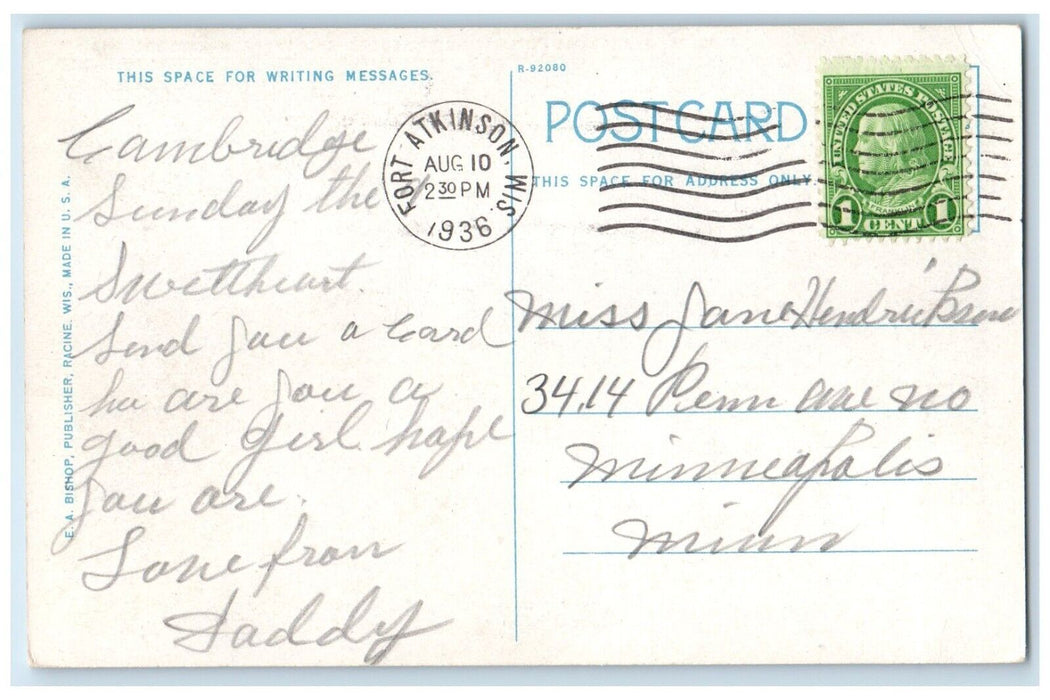 THIS SPACE FOR WRITING MESSAGES.
Cambridge
Sunday the
Swettheart.
Send you a Card
hu are you a
good Girl hope
you are.
Love from
Daddy
E. A. BISHOP, PUBLISHER, RACINE, WIS., MADE IN U. S. A.
FORT ATKINSON, WIS.
AUG 10
2 30 PM
1936
R-92080
POST CARD
THIS SPACE FOR ADDRESS ONLY
UNITED STATES POSTAGE
FRANKLIN
1 CENT 1
Miss Jane Hendricksen
3414 Penn ave no
Minneapolis
Minn